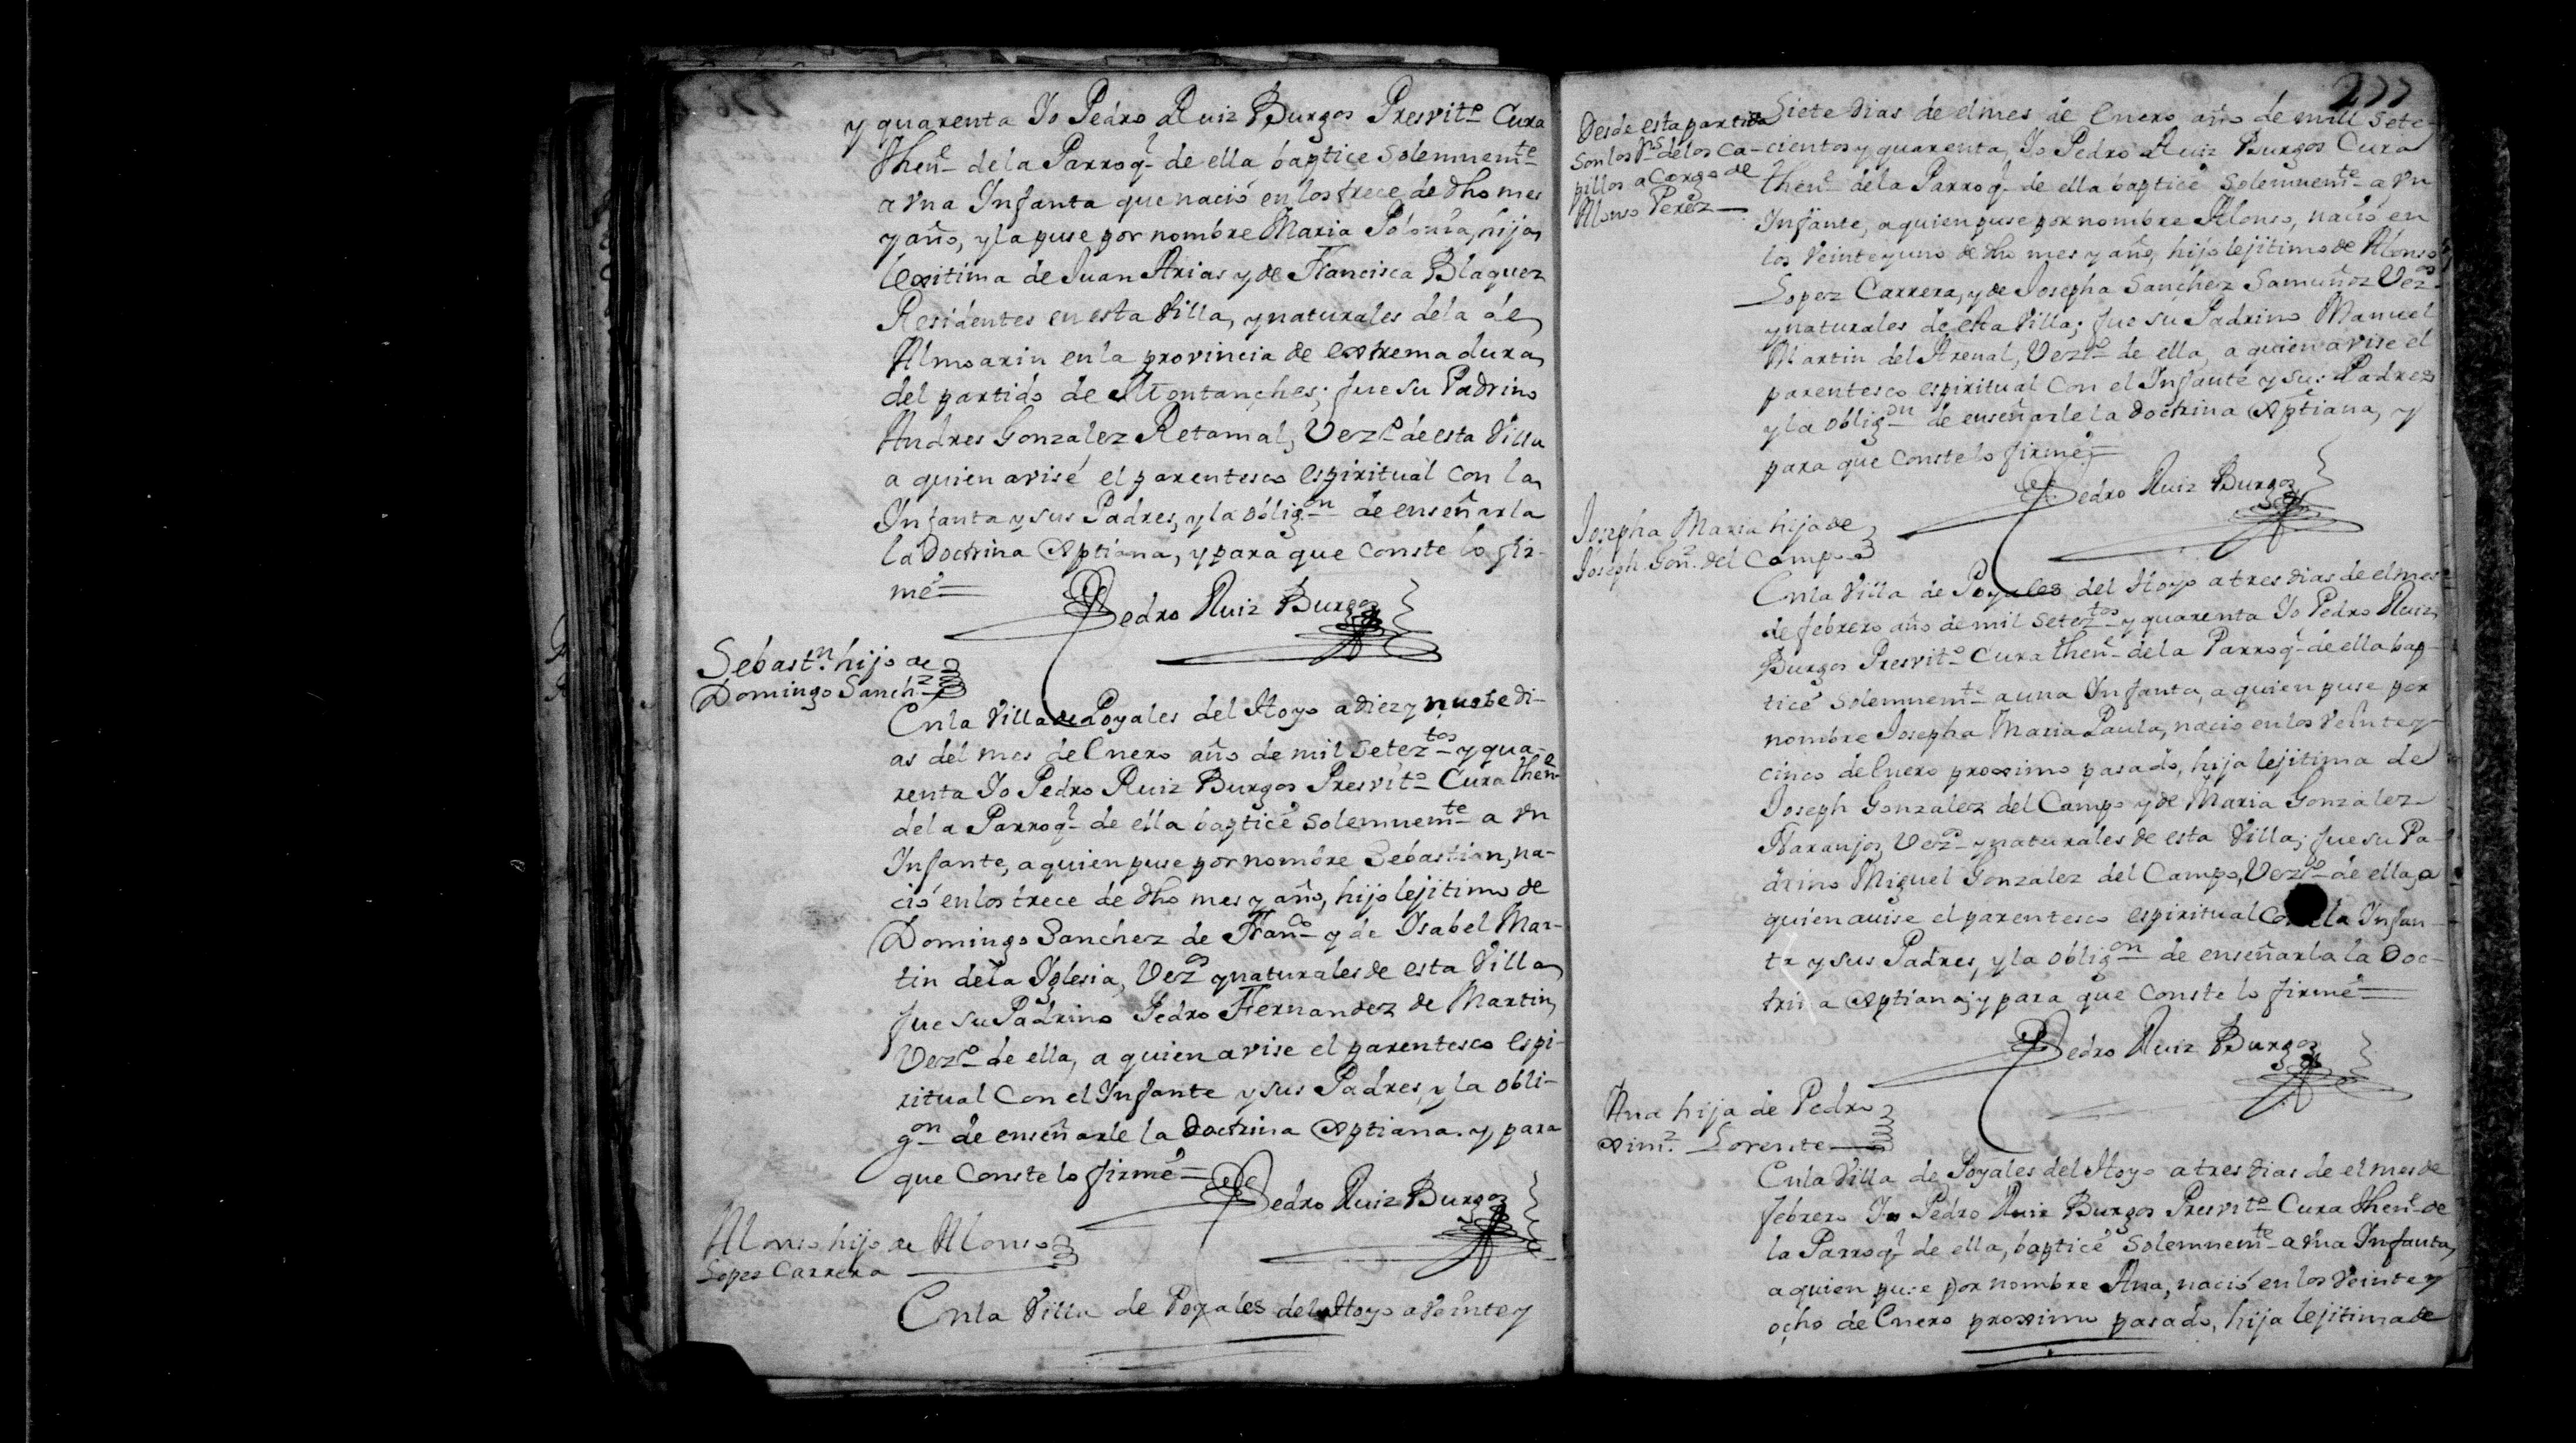 y quarenta Yo Pedro Ruiz Burgos Presvitº Cura
thenᵉ dela Parroqˡ de ella baptice Solemnemᵗᵉ
a vna Infanta que nació en los trece de dho mes
y año, y la puse por nombre Maria Polonia, hija
lexitima de Juan Arias y de Francisca Blaquez
Residentes en esta Villa, y naturales dela de
Almoarin en la provincia de extremadura,
del partido de Montanches; fue su Padrino
Andres Gonzalez Retamal, Vezº de esta Villa
a quien avisé el parentesco espiritual con la
Infanta y sus Padres, y la obligᵒⁿ de enseñarla
la Doctrina Xptiana, y para que conste lo fir-
mé=
Pedro Ruiz Burgos
Sebastⁿ hijo de
Domingo Sanchᶻ
Enla Villa de Poyales del Hoyo a diez y nuebe di-
as del mes de Enero año de mil Setezᵗᵒˢ y qua-
renta Yo Pedro Ruiz Burgos Presvitº Cura thenᵉ
dela Parroqˡ de ella baptice solemnemᵗᵉ a vn
Infante, a quien puse por nombre Sebastian, na-
ció en los trece de dho mes y año, hijo lejitimo de
Domingo Sanchez de Franᶜᵒ y de Isabel Mar-
tin dela Iglesia, Vezᵒˢ y naturales de esta Villa,
fue su Padrino Pedro Fernandez de Martin,
Vezº de ella, a quien avise el parentesco espi-
ritual con el Infante y sus Padres, y la obli-
gᵒⁿ de enseñarle la Doctrina Xptiana. y para
que conste lo firmé=
Pedro Ruiz Burgos
Alonso hijo de Alonso
Lopez Carrera
Enla Villa de Poyales del Hoyo a veinte y
277
Desde esta partida
son los ds delos Ca-
pillos a Cargo de
Alonso Perez
Siete dias de el mes de Enero año de mill Sete-
cientos y quarenta, Yo Pedro Ruiz Burgos Cura
thenᵉ dela Parroqˡ de ella baptice solemnemᵗᵉ a vn
Infante, a quien puse por nombre Alonso, nació en
los veinte y uno de dho mes y año, hijo lejitimo de Alonso
Lopez Carrera, y de Josepha Sanchez Samuñoz Vezᵒˢ
y naturales de esta Villa; fue su Padrino Manuel
Martin del Arenal, Vezº de ella, a quien avise el
parentesco espiritual con el Infante y sus Padres
y la obligᵒⁿ de enseñarle la doctrina Xptiana, y
para que conste lo firmé=
Pedro Ruiz Burgos
Josepha Maria hija de
Joseph Gonᶻ del Campo
Enla Villa de Poyales del Hoyo a tres dias de el mes
de febrero año de mil Setezᵗᵒˢ y quarenta Yo Pedro Ruiz
Burgos Presvitº Cura thenᵉ dela Parroqˡ de ella bap-
ticé solemnemᵗᵉ a una Infanta, a quien puse por
nombre Josepha Maria Paula, nacio en los veinte y
cinco de Enero proximo pasado, hija lejitima de
Joseph Gonzalez del Campo y de Maria Gonzalez
Naranjo, Vezᵒˢ y naturales de esta Villa; fue su Pa-
drino Miguel Gonzalez del Campo, Vezº de ella, a
quien avise el parentesco espiritual con la Infan-
ta y sus Padres, y la obligᵒⁿ de enseñarla la Doc-
trina Xptiana; y para que conste lo firmé=
Pedro Ruiz Burgos
Ana hija de Pedro
Ximᶻ Lorente
Enla Villa de Poyales del Hoyo a tres dias de el mes de
febrero Yo Pedro Ruiz Burgos Presvitº Cura thenᵉ de
la Parroqˡ de ella, bapticé solemnemᵗᵉ a vna Infanta,
a quien puse por nombre Ana, nació en los veinte y
ocho de Enero proximo pasado, hija lejitima de